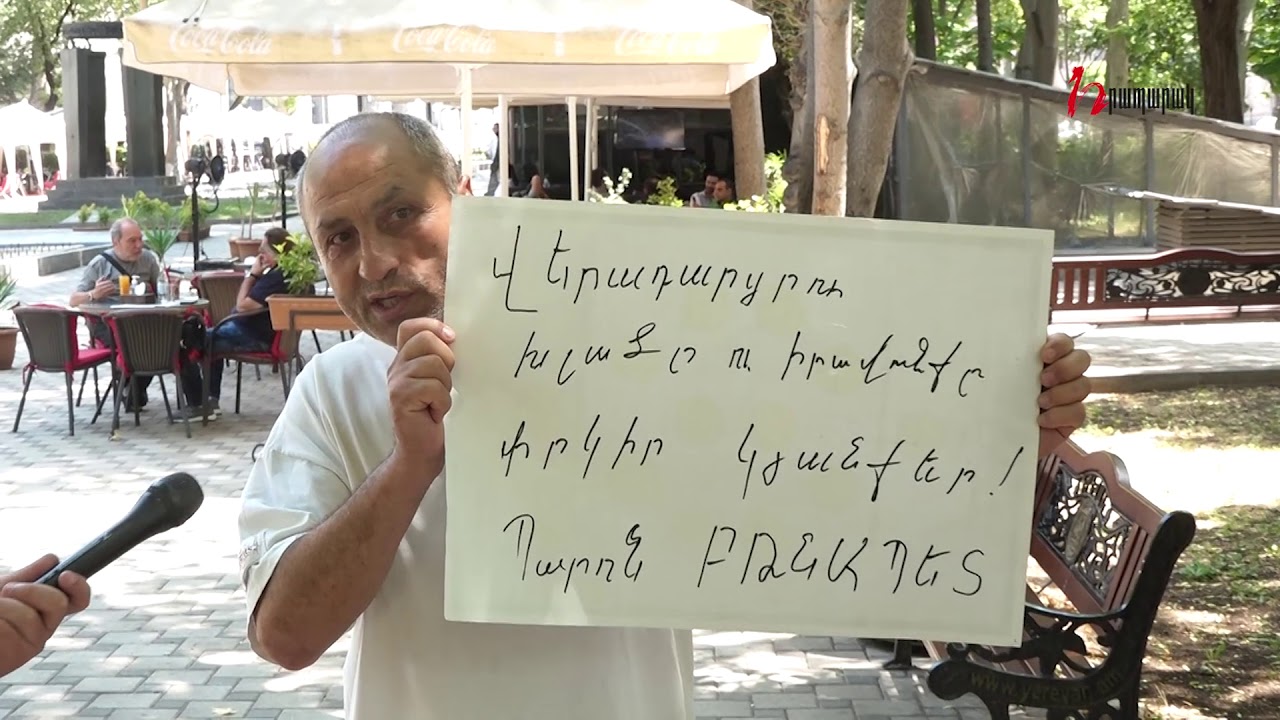 Coca-Cola Coca-Cola Coca-Cola
Հրապարակ
Վերադարցրու
խլածը ու իրավունքը
փրկիր կյանքեր!
Պարոն ԲՌՆԱՊԵՏ
www.yerevan.am